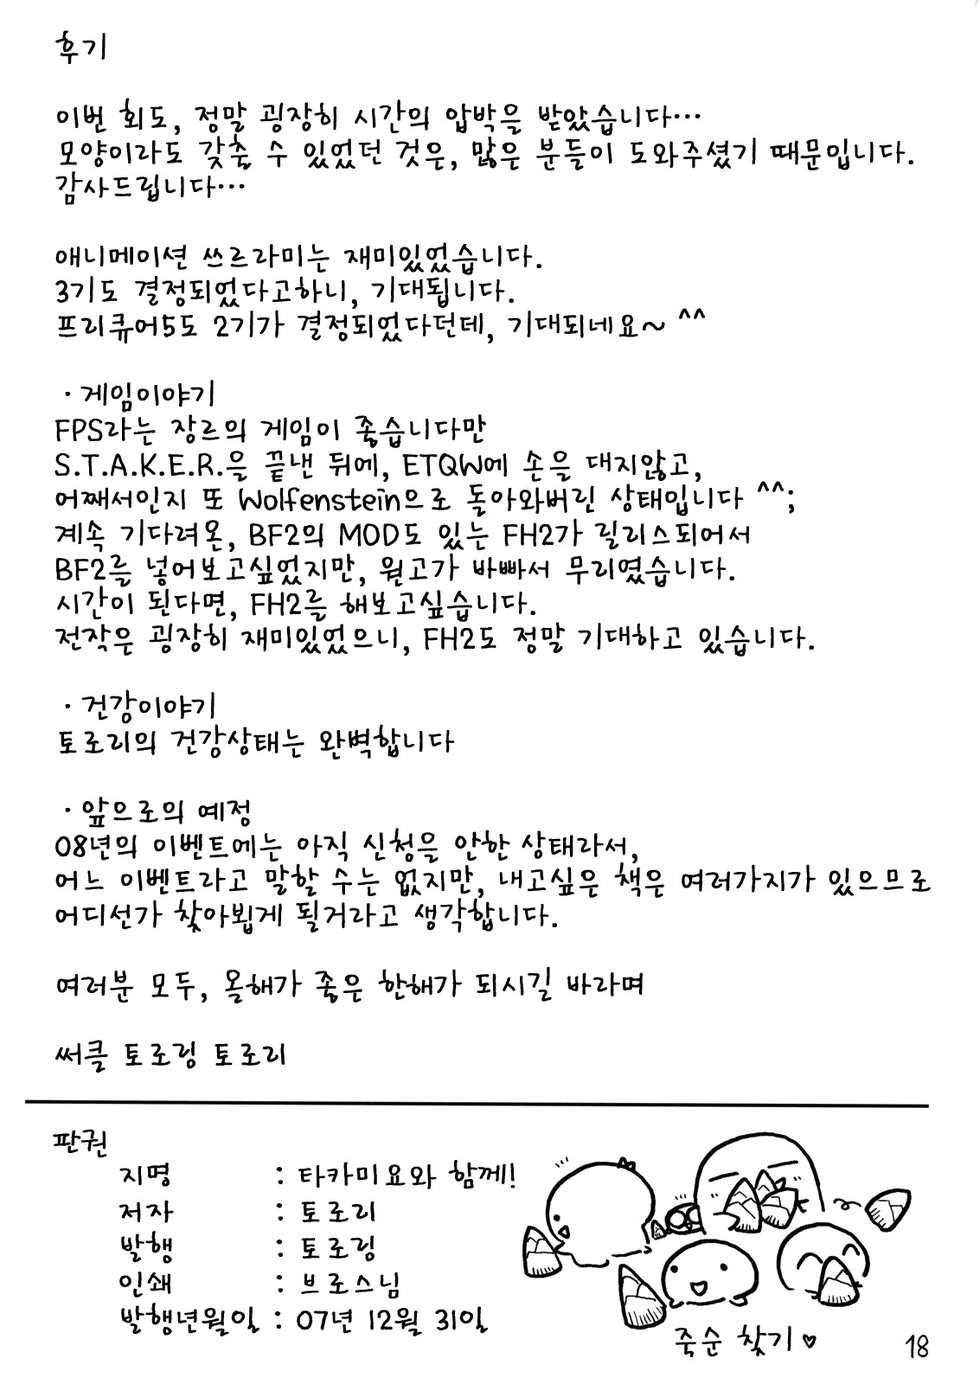 후기
이번 회도, 정말 굉장히 시간의 압박을 받았습니다…
모양이라도 갖출 수 있었던 것은, 많은 분들이 도와주셨기 때문입니다.
감사드립니다…
애니메이션 쓰르라미는 재미있었습니다.
3기도 결정되었다고하니, 기대됩니다.
프리큐어5도 2기가 결정되었다던데, 기대되네요~ ^^
·게임이야기
FPS라는 장르의 게임이 좋습니다만
S.T.A.K.E.R.을 끝낸 뒤에, ETQW에 손을 대지않고,
어째서인지 또 Wolfenstein으로 돌아와버린 상태입니다 ^^;
계속 기다려온, BF2의 MOD도 있는 FH2가 릴리스되어서
BF2를 넣어보고싶었지만, 원고가 바빠서 무리였습니다.
시간이 된다면, FH2를 해보고싶습니다.
전작은 굉장히 재미있었으니, FH2도 정말 기대하고 있습니다.
·건강이야기
토로리의 건강상태는 완벽합니다
·앞으로의 예정
08년의 이벤트에는 아직 신청을 안한 상태라서,
어느 이벤트라고 말할 수는 없지만, 내고싶은 책은 여러가지가 있으므로
어디선가 찾아뵙게 될거라고 생각합니다.
여러분 모두, 올해가 좋은 한해가 되시길 바라며
써클 토로링 토로리
판권
지명 : 타카미요와 함께!
저자 : 토로리
발행 : 토로링
인쇄 : 브로스님
발행년월일 : 07년 12월 31일
죽순 찾기♡
18